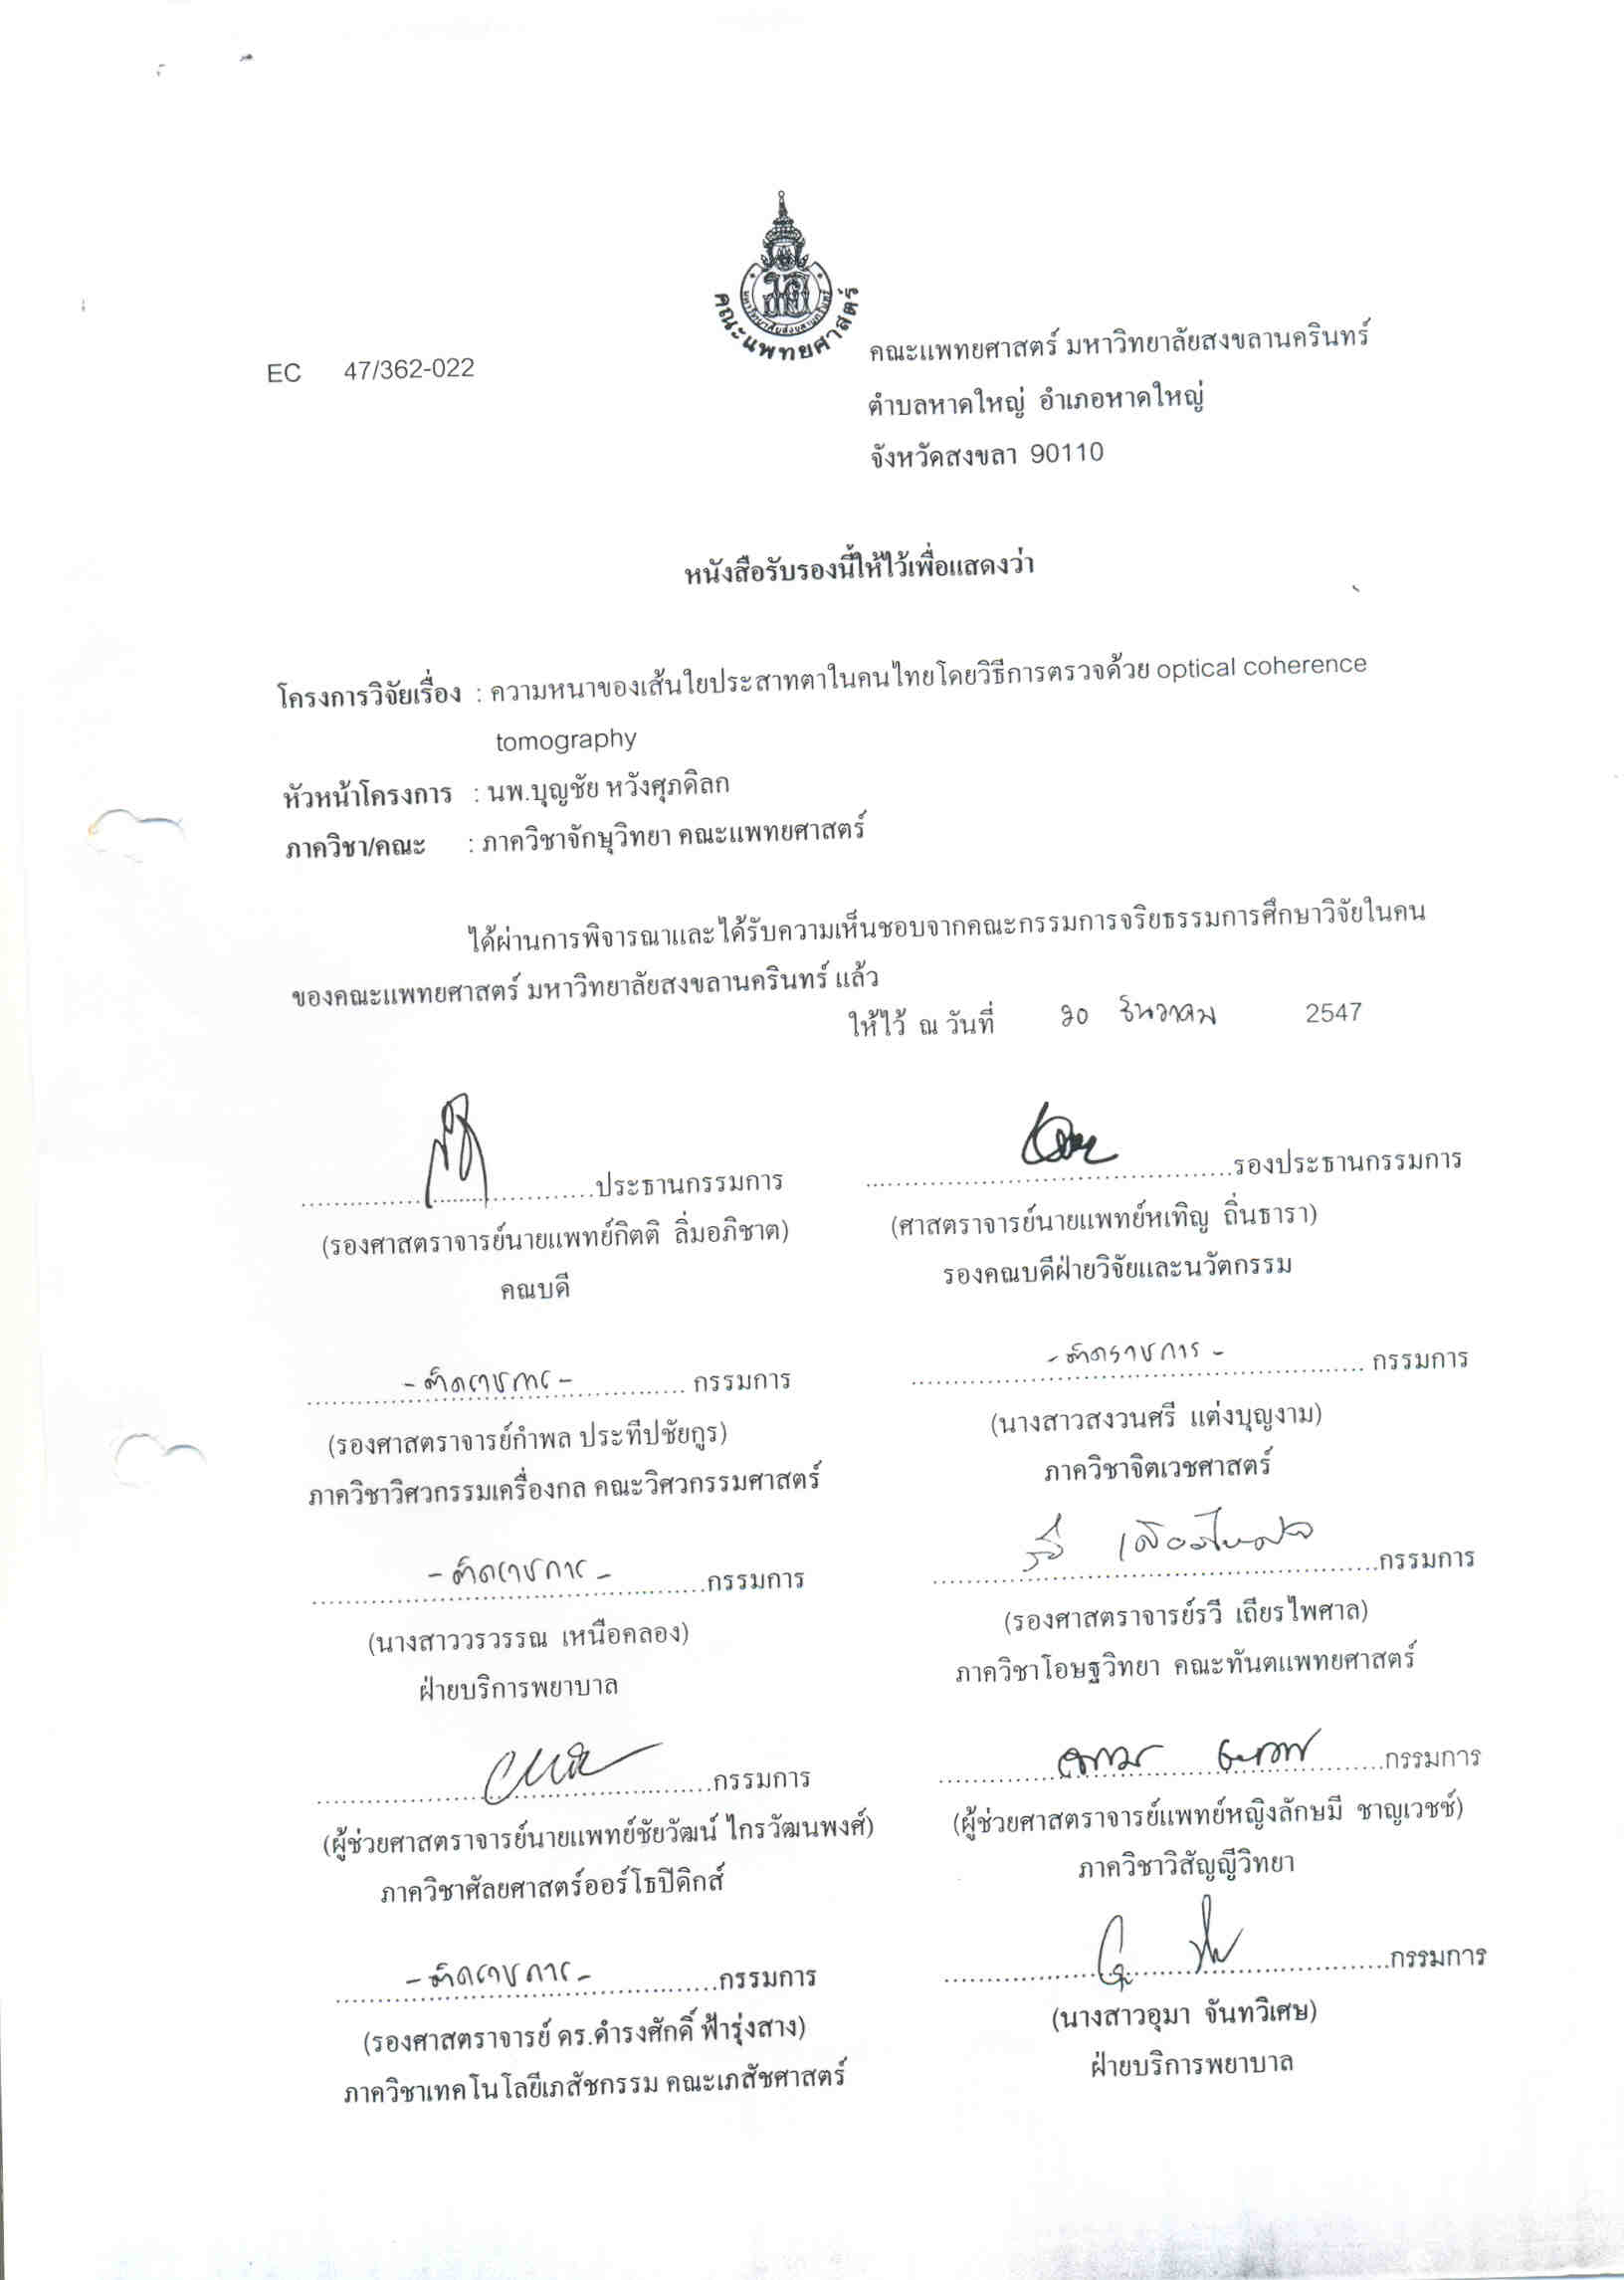 คณะแพทยศาสตร์
EC 47/362-022
คณะแพทยศาสตร์ มหาวิทยาลัยสงขลานครินทร์
ตำบลหาดใหญ่ อำเภอหาดใหญ่
จังหวัดสงขลา 90110
หนังสือรับรองนี้ให้ไว้เพื่อแสดงว่า
โครงการวิจัยเรื่อง : ความหนาของเส้นใยประสาทตาในคนไทยโดยวิธีการตรวจด้วย optical coherence
tomography
หัวหน้าโครงการ : นพ.บุญชัย หวังศุภดิลก
ภาควิชา/คณะ : ภาควิชาจักษุวิทยา คณะแพทยศาสตร์
ได้ผ่านการพิจารณาและได้รับความเห็นชอบจากคณะกรรมการจริยธรรมการศึกษาวิจัยในคน
ของคณะแพทยศาสตร์ มหาวิทยาลัยสงขลานครินทร์ แล้ว
ให้ไว้ ณ วันที่ ๒๐ ธันวาคม 2547
ประธานกรรมการ รองประธานกรรมการ
(รองศาสตราจารย์นายแพทย์กิตติ ลิ่มอภิชาต) (ศาสตราจารย์นายแพทย์หเทิญ ถิ่นธารา)
คณบดี รองคณบดีฝ่ายวิจัยและนวัตกรรม
- ติดราชการ - กรรมการ - ติดราชการ - กรรมการ
(รองศาสตราจารย์กำพล ประทีปชัยกูร) (นางสาวสงวนศรี แต่งบุญงาม)
ภาควิชาวิศวกรรมเครื่องกล คณะวิศวกรรมศาสตร์ ภาควิชาจิตเวชศาสตร์
- ติดราชการ - กรรมการ รวี เถียรไพศาล กรรมการ
(นางสาววรวรรณ เหนือคลอง) (รองศาสตราจารย์รวี เถียรไพศาล)
ฝ่ายบริการพยาบาล ภาควิชาโอษฐวิทยา คณะทันตแพทยศาสตร์
กรรมการ กรรมการ
(ผู้ช่วยศาสตราจารย์นายแพทย์ชัยวัฒน์ ไกรวัฒนพงศ์) (ผู้ช่วยศาสตราจารย์แพทย์หญิงลักษมี ชาญเวชช์)
ภาควิชาศัลยศาสตร์ออร์โธปิดิกส์ ภาควิชาวิสัญญีวิทยา
- ติดราชการ - กรรมการ กรรมการ
(รองศาสตราจารย์ ดร.ดำรงศักดิ์ ฟ้ารุ่งสาง) (นางสาวอุมา จันทวิเศษ)
ภาควิชาเทคโนโลยีเภสัชกรรม คณะเภสัชศาสตร์ ฝ่ายบริการพยาบาล